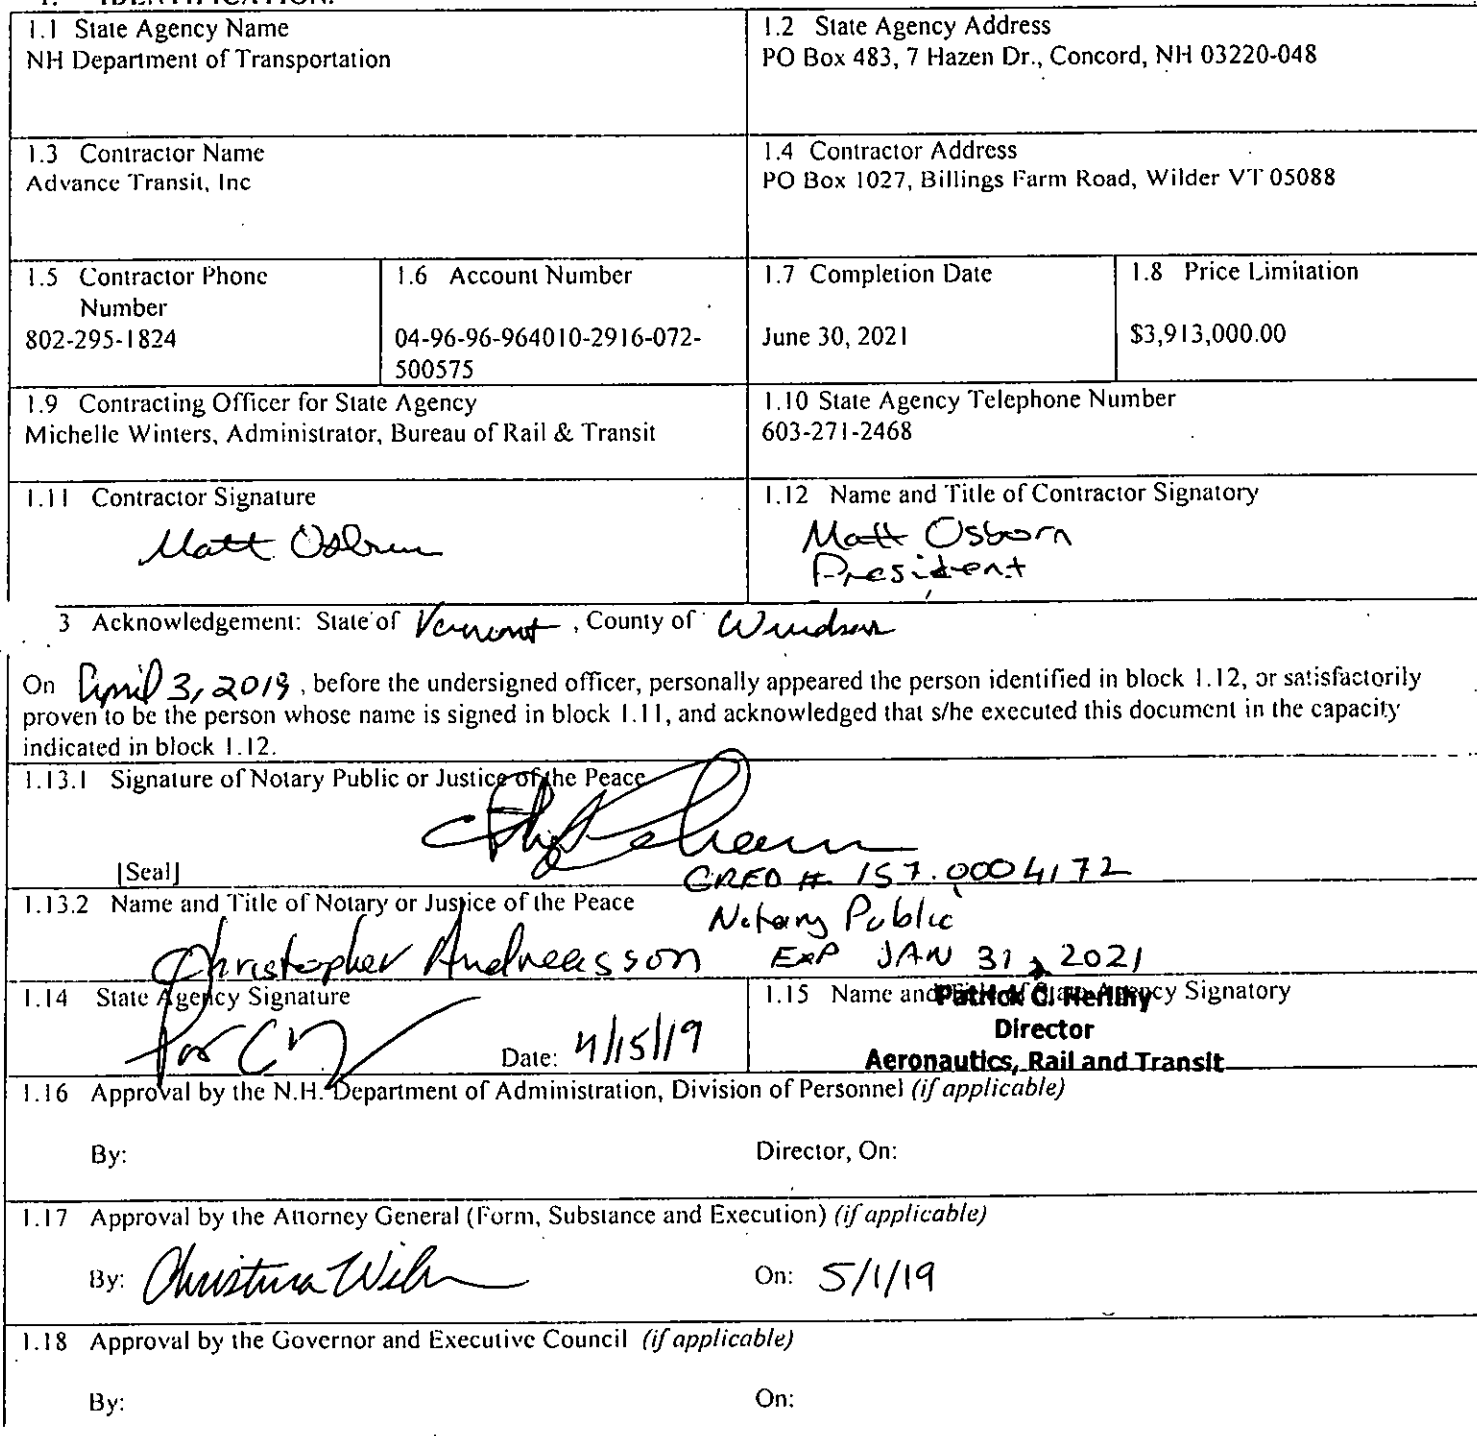 1. IDENTIFICATION.
1.1 State Agency Name
NH Department of Transportation
1.2 State Agency Address
PO Box 483, 7 Hazen Dr., Concord, NH 03220-048
1.3 Contractor Name
Advance Transit, Inc
1.4 Contractor Address
PO Box 1027, Billings Farm Road, Wilder VT 05088
1.5 Contractor Phone
Number
802-295-1824
1.6 Account Number
04-96-96-964010-2916-072-
500575
1.7 Completion Date
June 30, 2021
1.8 Price Limitation
$3,913,000.00
1.9 Contracting Officer for State Agency
Michelle Winters, Administrator, Bureau of Rail & Transit
1.10 State Agency Telephone Number
603-271-2468
1.11 Contractor Signature
Matt Osborn
1.12 Name and Title of Contractor Signatory
Matt Osborn
President
3 Acknowledgement: State of Vermont, County of Windsor
On April 3, 2019, before the undersigned officer, personally appeared the person identified in block 1.12, or satisfactorily
proven to be the person whose name is signed in block 1.11, and acknowledged that s/he executed this document in the capacity
indicated in block 1.12.
1.13.1 Signature of Notary Public or Justice of the Peace
[Seal]
CRED # 157.0004172
1.13.2 Name and Title of Notary or Justice of the Peace
Notary Public
Christopher Andreasson
EXP JAN 31, 2021
1.14 State Agency Signature
Date: 4/15/19
1.15 Name and Title of State Agency Signatory
Patrick C. Herlihy
Director
Aeronautics, Rail and Transit
1.16 Approval by the N.H. Department of Administration, Division of Personnel (if applicable)
By:
Director, On:
1.17 Approval by the Attorney General (Form, Substance and Execution) (if applicable)
By: Christina Wil
On: 5/1/19
1.18 Approval by the Governor and Executive Council (if applicable)
By:
On: